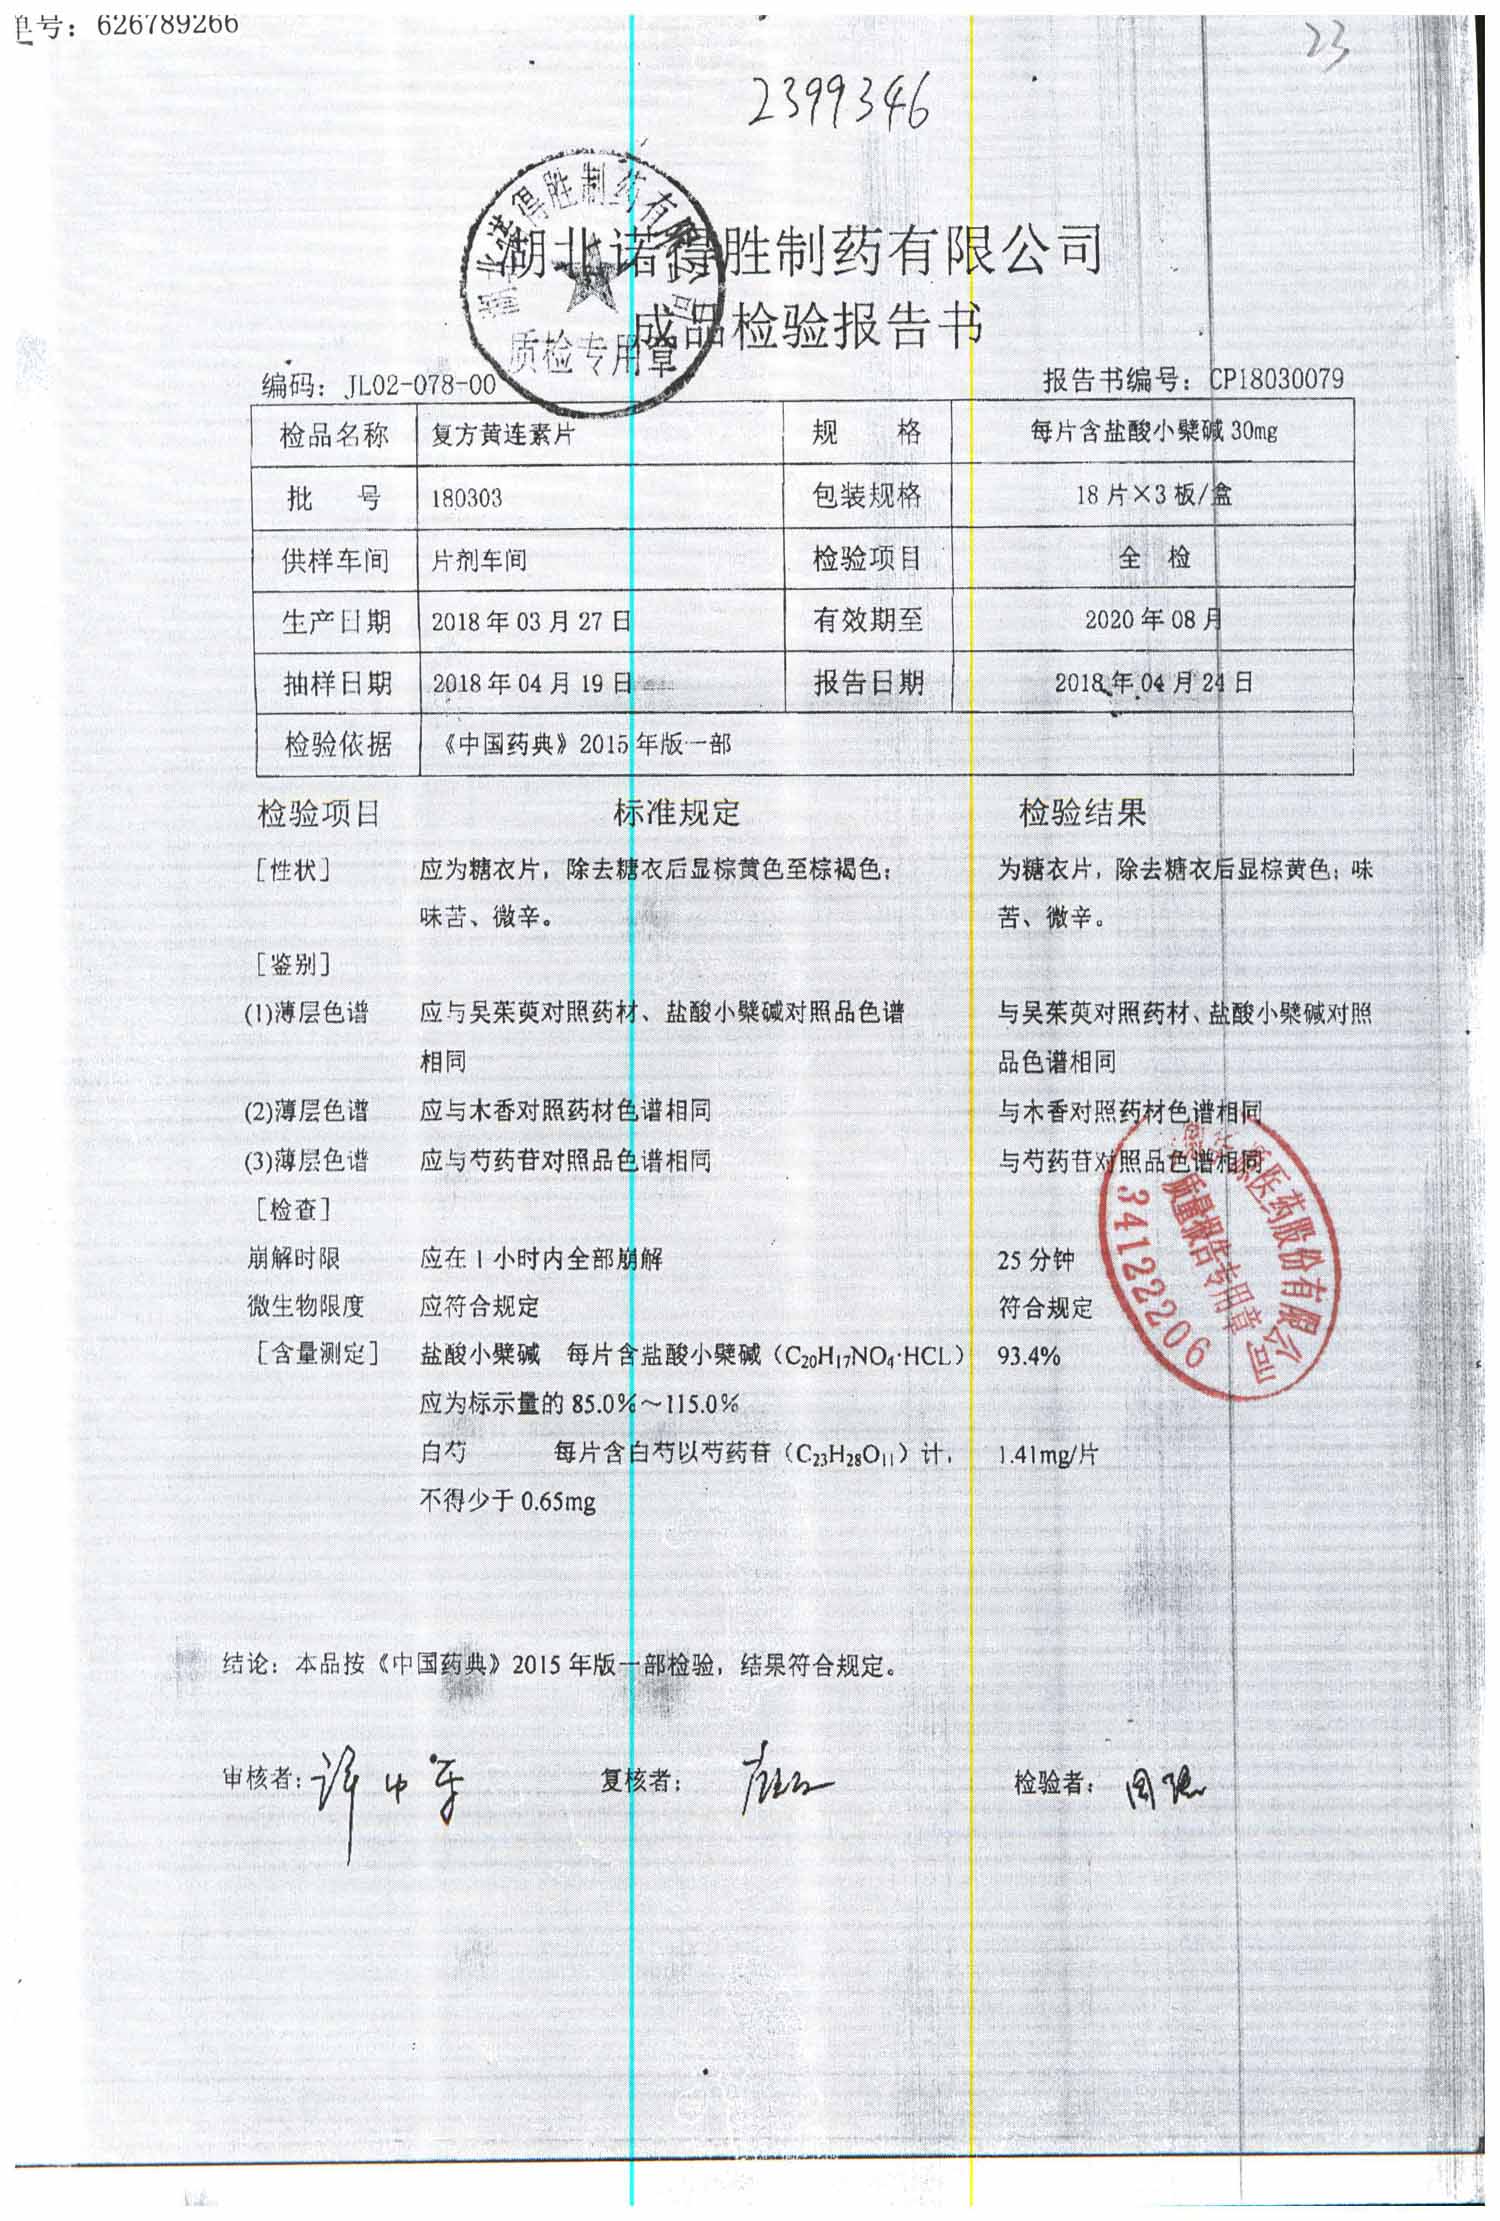 单号：626789266
23
2399346
湖北诺得胜制药有限公司
质检专用章
湖北诺得胜制药有限公司
成品检验报告书
编码：JL02-078-00 报告书编号：CP18030079
检品名称 复方黄连素片 规 格 每片含盐酸小檗碱 30mg
批 号 180303 包装规格 18 片×3 板/盒
供样车间 片剂车间 检验项目 全 检
生产日期 2018 年 03 月 27 日 有效期至 2020 年 08 月
抽样日期 2018 年 04 月 19 日 报告日期 2018 年 04 月 24 日
检验依据 《中国药典》2015 年版一部
检验项目 标准规定 检验结果
［性状］ 应为糖衣片，除去糖衣后显棕黄色至棕褐色； 为糖衣片，除去糖衣后显棕黄色；味
味苦、微辛。 苦、微辛。
［鉴别］
(1)薄层色谱 应与吴茱萸对照药材、盐酸小檗碱对照品色谱 与吴茱萸对照药材、盐酸小檗碱对照
相同 品色谱相同
(2)薄层色谱 应与木香对照药材色谱相同 与木香对照药材色谱相同
(3)薄层色谱 应与芍药苷对照品色谱相同 与芍药苷对照品色谱相同
［检查］
崩解时限 应在 1 小时内全部崩解 25 分钟
微生物限度 应符合规定 符合规定
［含量测定］ 盐酸小檗碱 每片含盐酸小檗碱（C₂₀H₁₇NO₄·HCL） 93.4%
应为标示量的 85.0%～115.0%
白芍 每片含白芍以芍药苷（C₂₃H₂₈O₁₁）计， 1.41mg/片
不得少于 0.65mg
医药股份有限公司
质量报告专用章
34122206
结论：本品按《中国药典》2015 年版一部检验，结果符合规定。
审核者： 复核者： 检验者：